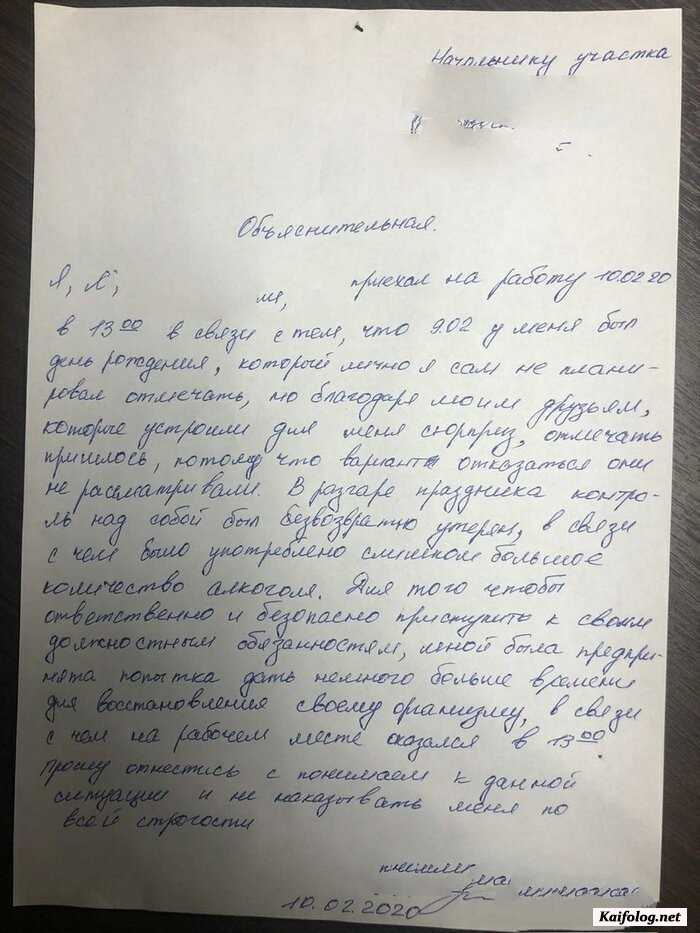 Начальнику участка
Объяснительная.
Я, приехал на работу 10.02.20
в 13 00 в связи с тем, что 9.02 у меня был
день рождения, который лично я сам не плани-
ровал отмечать, но благодаря моим друзьям,
которые устроили для меня сюрприз, отмечать
пришлось, потому что варианты отказаться они
не рассматривали. В разгаре праздника контро-
ль над собой был безвозвратно утерян, в связи
с чем было употреблено слишком большое
количество алкоголя. Для того чтобы
ответственно и безопасно приступить к своим
должностным обязанностям, мной была предпри-
нята попытка дать немного больше времени
для восстановления своему организму, в связи
с чем на рабочем месте оказался в 13 00
Прошу отнестись с понимаем к данной
ситуации и не наказывать меня по
всей строгости
10.02.2020
Kaifolog.net